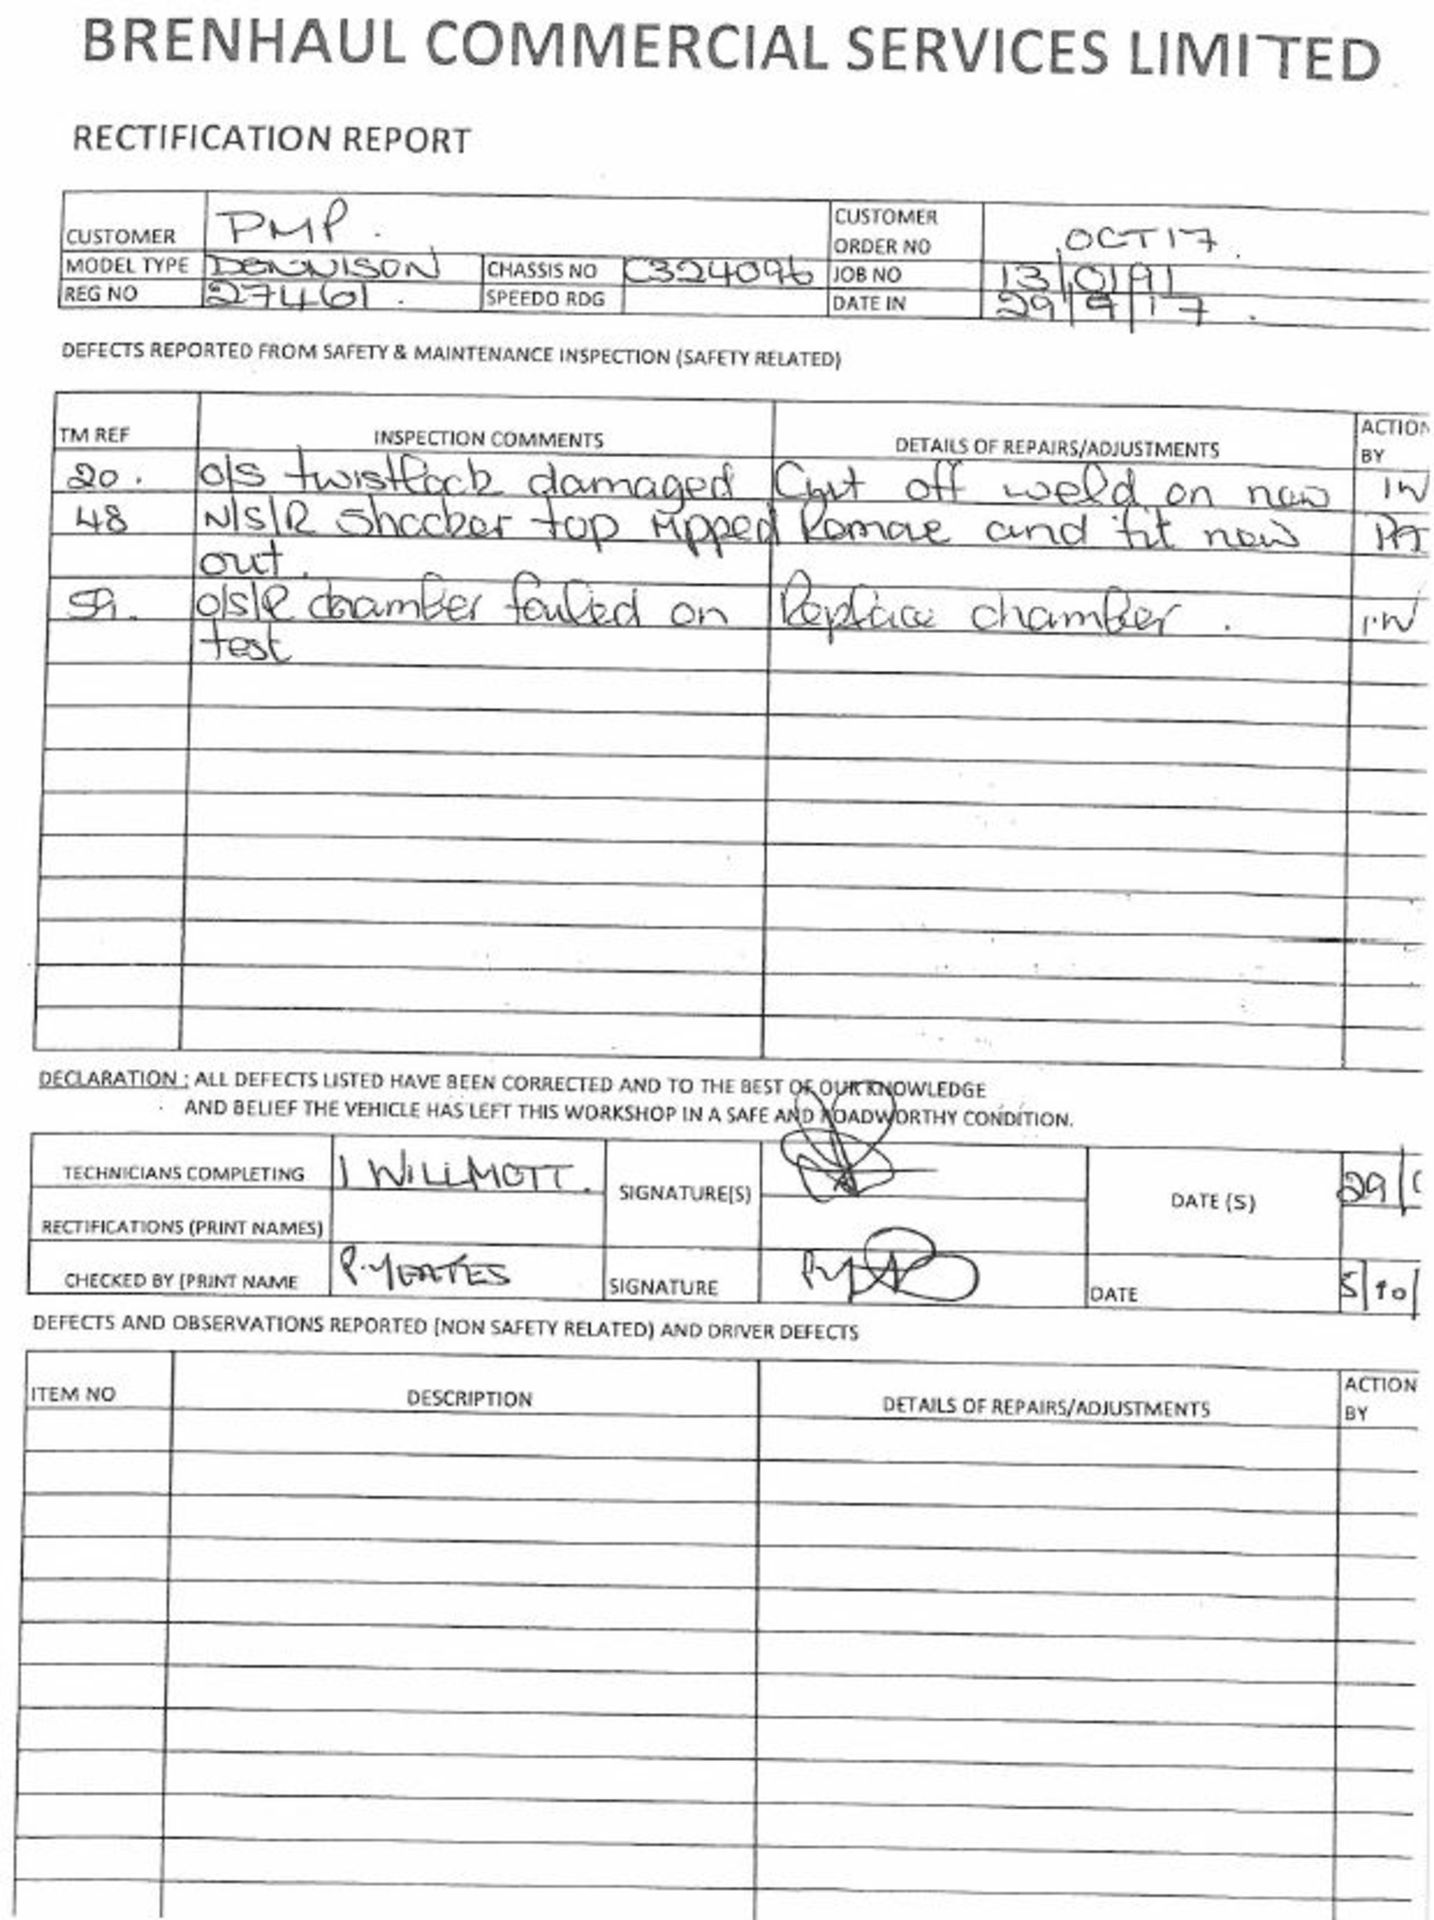 BRENHAUL COMMERCIAL SERVICES LIMITED
RECTIFICATION REPORT
CUSTOMER PMP. CUSTOMER ORDER NO OCT17.
MODEL TYPE DENNISON CHASSIS NO C324096 JOB NO 13/0191
REG NO 27461. SPEEDO RDG DATE IN 29/9/17.
DEFECTS REPORTED FROM SAFETY & MAINTENANCE INSPECTION (SAFETY RELATED)
TM REF INSPECTION COMMENTS DETAILS OF REPAIRS/ADJUSTMENTS ACTION BY
20. O/S twistlock damaged Cut off weld on new IW
48 N/S/R Shocker top ripped Remove and fit new
out.
59. O/S/R chamber failed on Replace chamber. I.W
test
DECLARATION : ALL DEFECTS LISTED HAVE BEEN CORRECTED AND TO THE BEST OF OUR KNOWLEDGE
AND BELIEF THE VEHICLE HAS LEFT THIS WORKSHOP IN A SAFE AND ROADWORTHY CONDITION.
TECHNICIANS COMPLETING I WILLMOTT. SIGNATURE(S) DATE (S) 29/
RECTIFICATIONS (PRINT NAMES)
CHECKED BY (PRINT NAME P.YEATES SIGNATURE DATE 5/10/
DEFECTS AND OBSERVATIONS REPORTED (NON SAFETY RELATED) AND DRIVER DEFECTS
ITEM NO DESCRIPTION DETAILS OF REPAIRS/ADJUSTMENTS ACTION BY